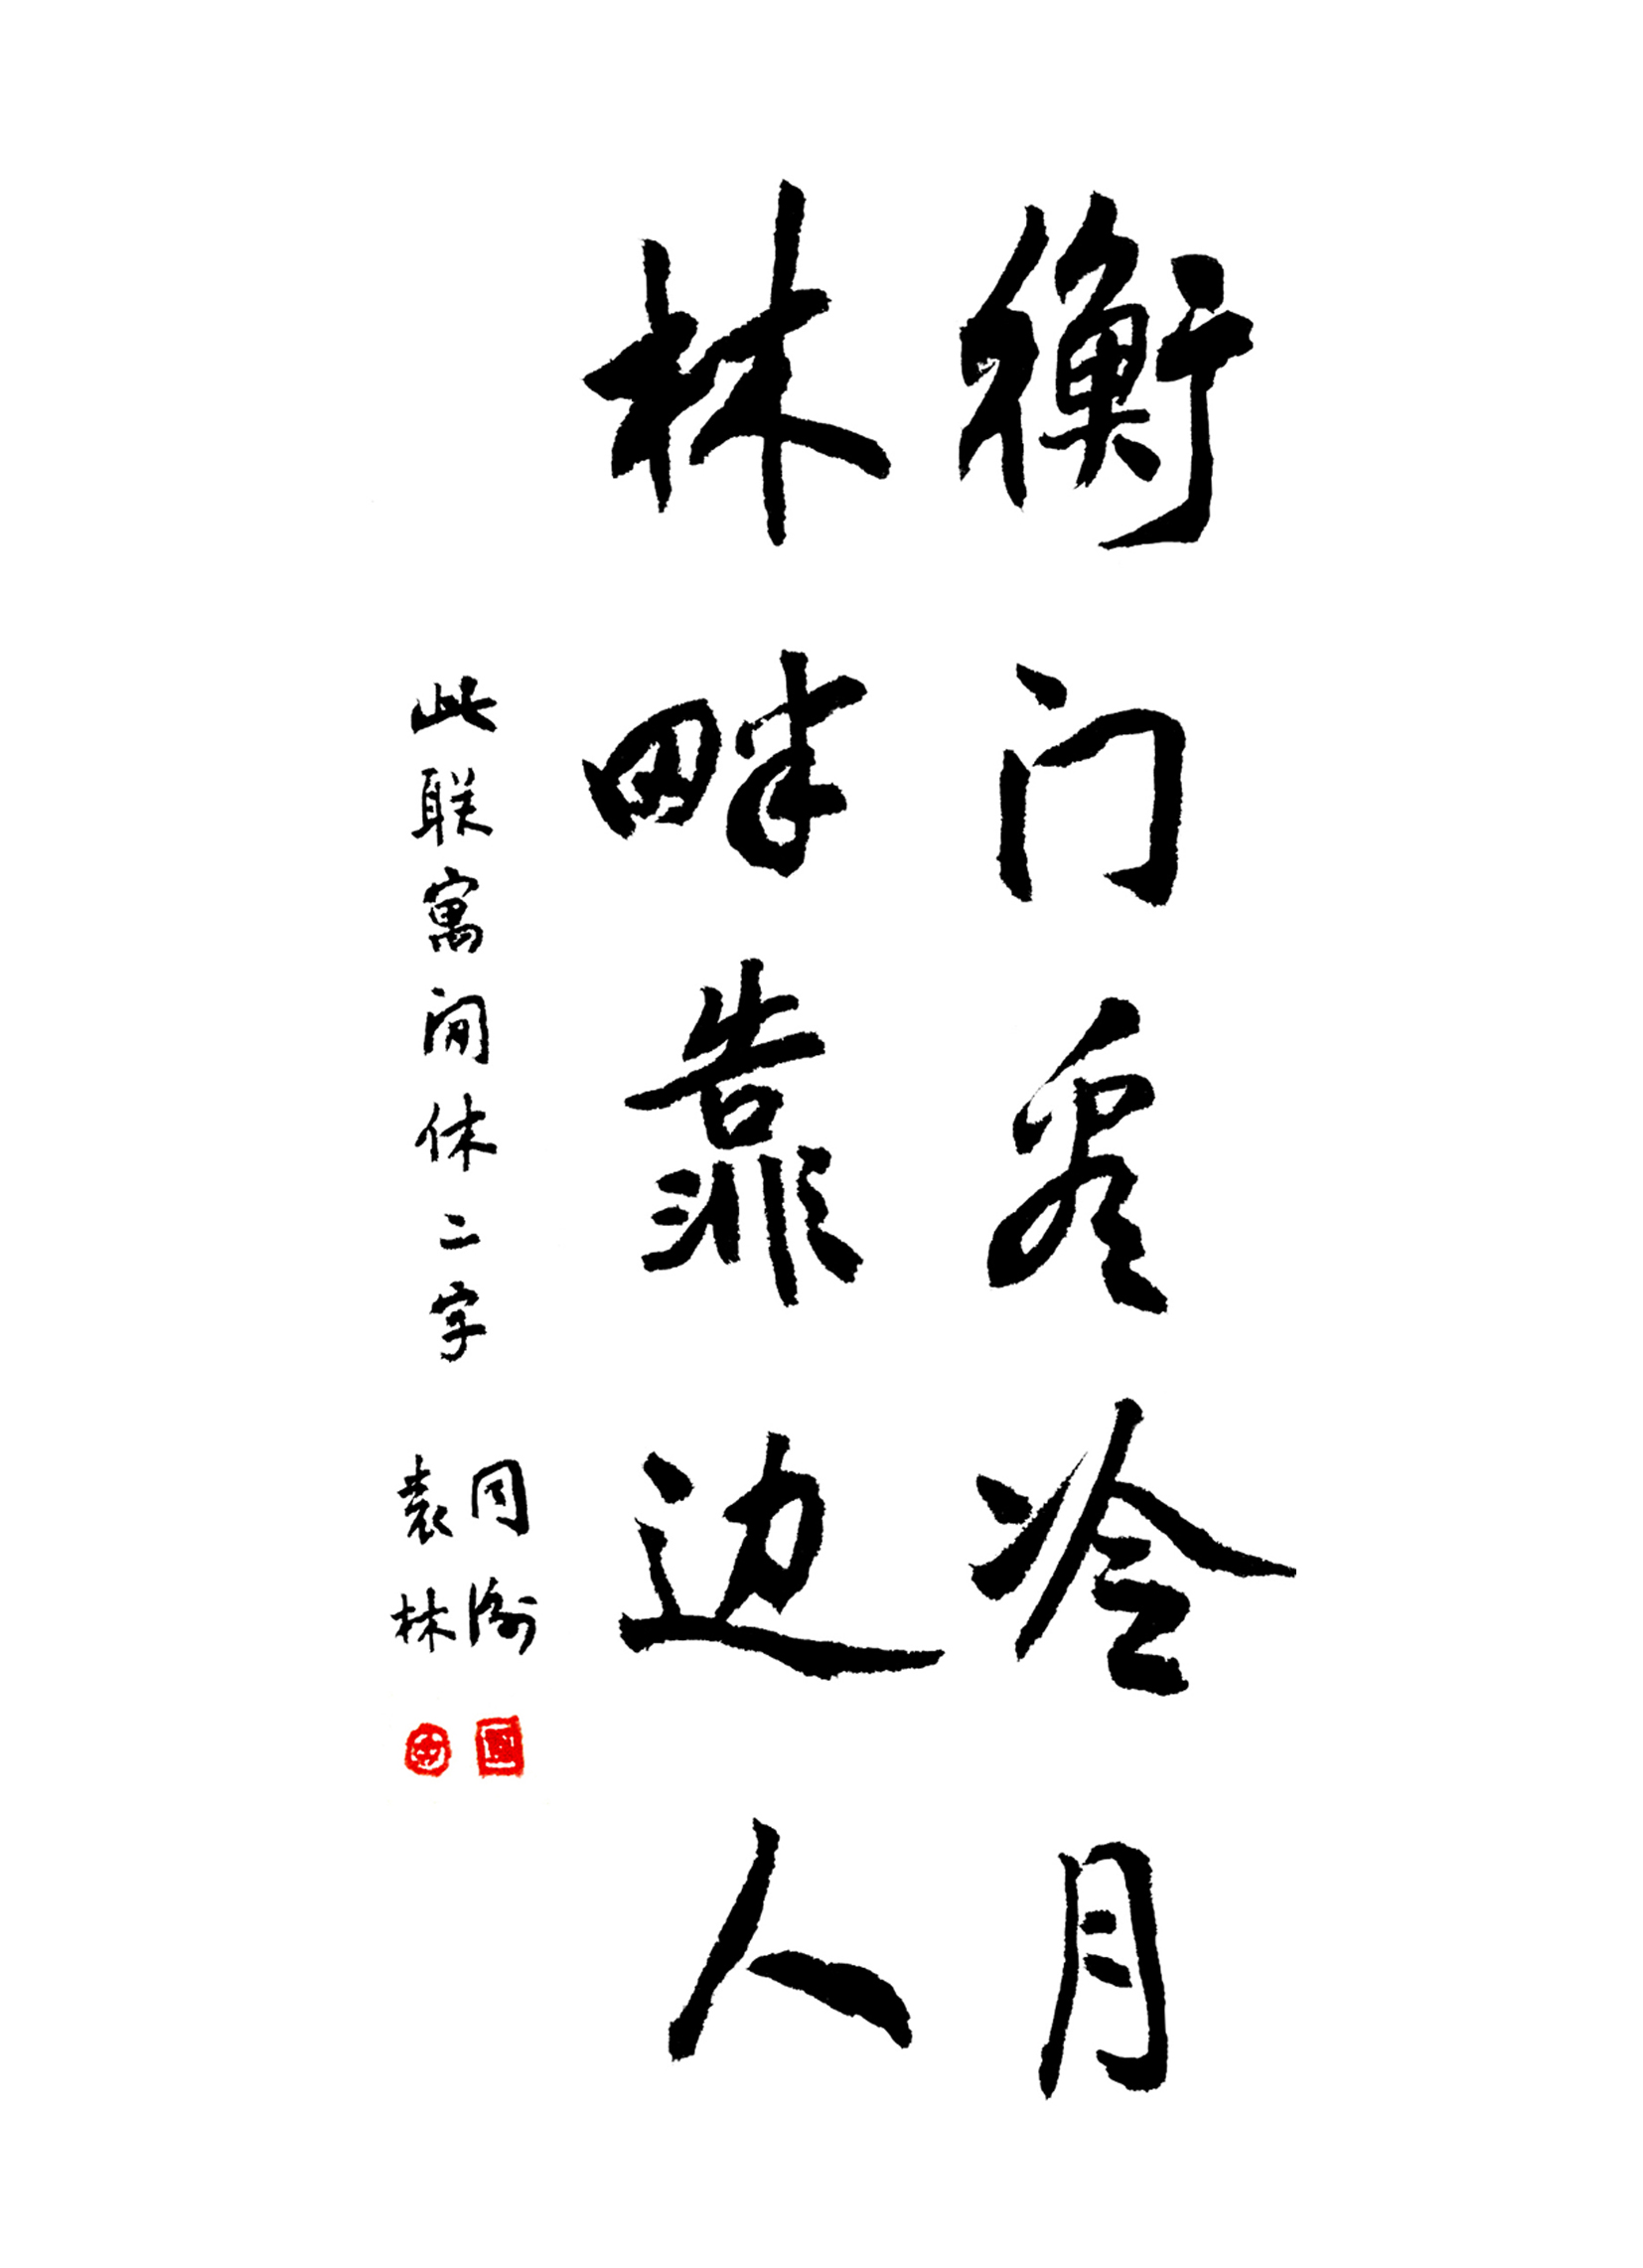 衡门冷月
林畔靠边人
此联寓闲休二字
周衡
袁林